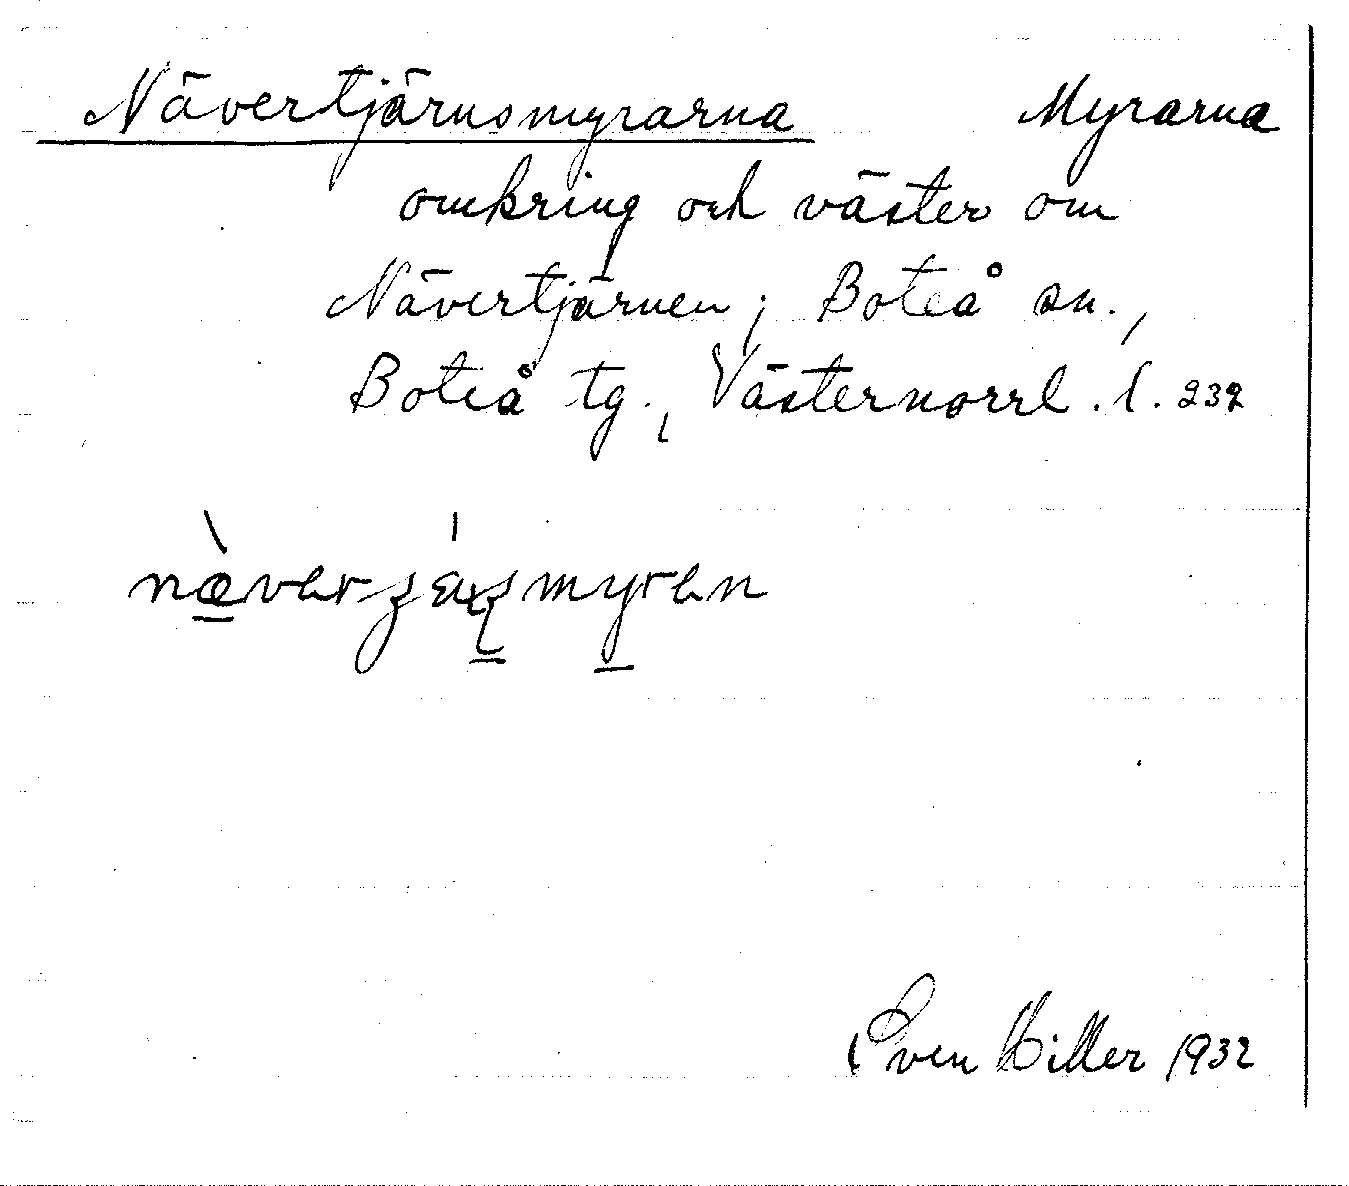 Nävertjärnsmyrarna Myrarna
omkring och väster om
Nävertjärnen; Boteå sn.,
Boteå tg., Västernorrl. l. 232
Sven Hiller 1932